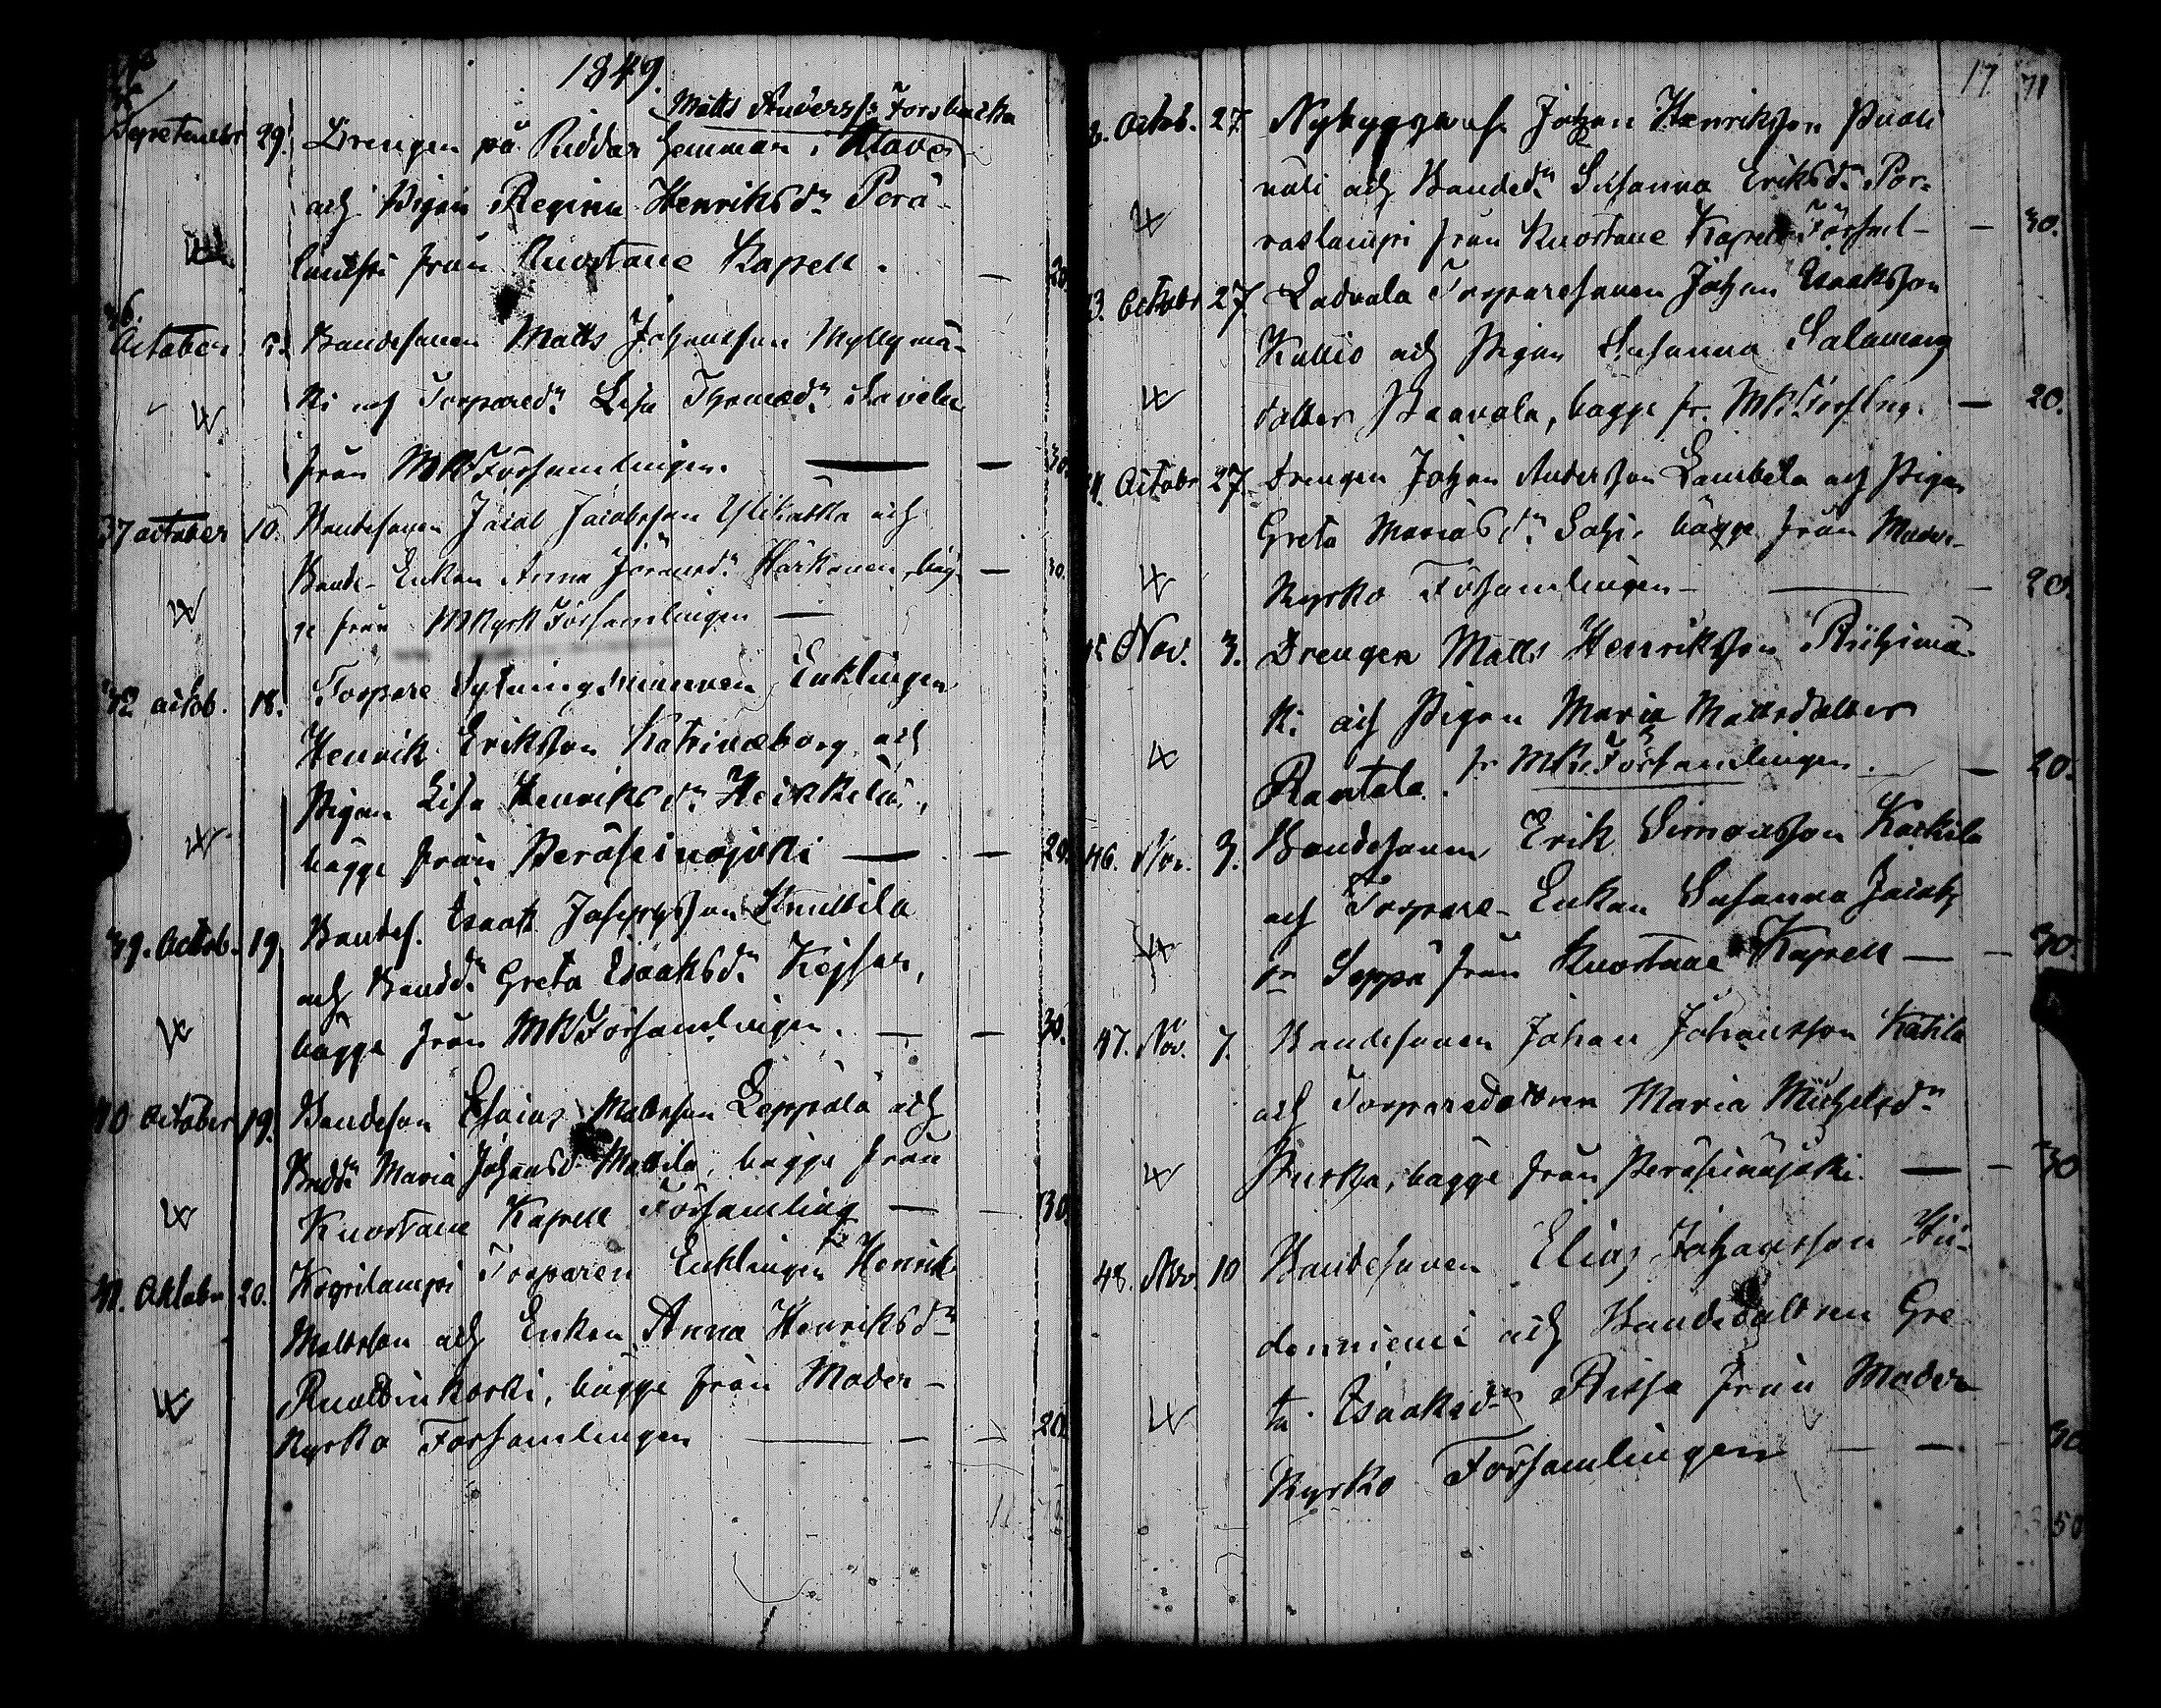 1849.
Matts Anderss: Forsbacka
September 29. Drengen på Riddar hemman i Alavo
och Pigan Regina Henriksdr Porä-
från Kuortane Kapell. — 20.
36.
October 7. Bondesonen Matts Johansson Myllymä-
ki och Torparedr Lisa Thomædr Savela
från MKFörsamlingen. — — 30.
37 october 10. Bondesonen Jacob Jacobsson Ylikatka och
Bonde-Enkan Anna Göransdr Härkönen, båg- — 30.
ge från MKyrk Församlingen —
octob. 18. Torpare Sytningsmannen Enklingen
Henrik Eriksson Katrineborg och
Pigan Lisa Henriksdr Heikkilä,
bägge från Peräseinäjoki — — 20.
39. Octob. 19 Bondes. Isaak Josephsson Knuttila
och Bonddr Greta Isaaksdr Kejsar,
bägge från MKFörsamlingen. — — 30.
40 October 19. Bondeson Esaias Mattsson Leppälä och
Bnddr Maria Johansdr Mattila, bägge från
Kuortane Kapell Församling — — 30.
41. Oktober 20. Torparen Enklingen Henrik
Mattsson och Enkan Anna Henriksdr
Ruottinkoski, bägge från Moder-
kyrko Församlingen — — 20.
17 71
Octob. 27 Nybyggares. Johan Henriksson Puoli
väli och Bondedr Susanna Eriksdr Por-
raslampi från Kuortane Kapell Försml — — 30.
43. October 27. Ladvala Torparesonen Johan Isaaksson
Kallio och Pigan Susanna Salomons
dotter Paavola, bägge fr. MKFörslng. — 20.
October 27. Drengen Johan Andersson Lambela och Pigan
Greta Mariasdr Sahi, bägge från Moder-
kyrko Församlingen — — 20.
Nov. 3. Drengen Matts Henriksson Riihimä-
ki och Pigan Maria Mattsdotter
Rantala. fr MK. Församlingen. — 20.
46. Nov. 3. Bondesonen Erik Simonsson Kaskila
och Torpare-Enkan Susanna Jacobs
dr Seppä från Kuortane Kapell — — 30.
47. Nov. 7. Bondesonen Johan Johansson Katila
och Torparedottren Maria Michelsdr
Purha, bägge från Peräseinäjoki. — — 30
48. Nov. 10 Bondesonen Elias Johansson Hii-
denniemi och Bondedottren Gre
ta Isaaksdr Rissa från Moder
kyrko Församlingen — — 30
50